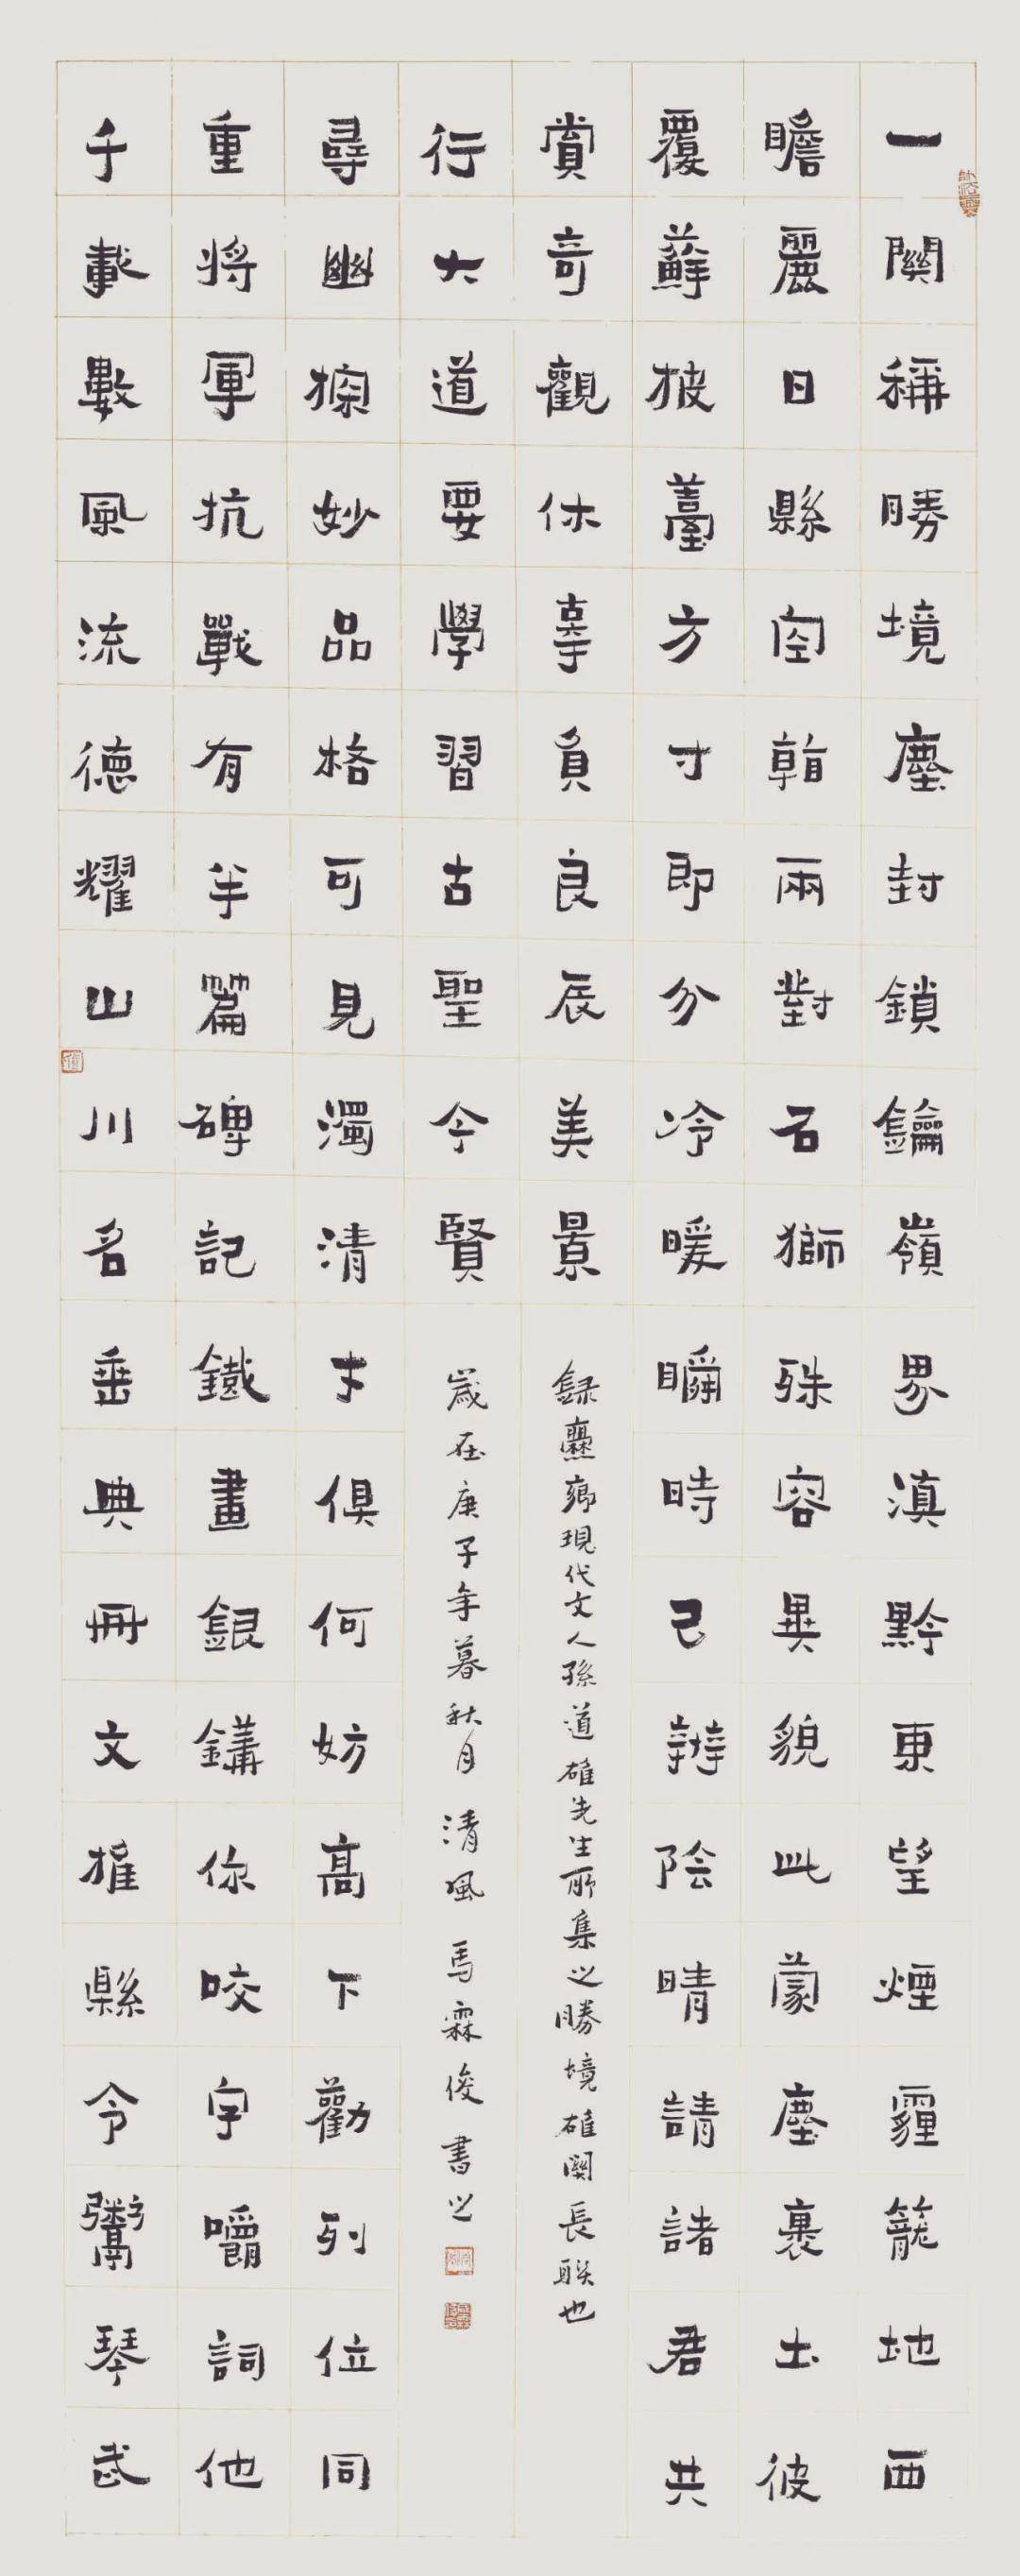 一關稱勝境塵封鎖鑰嶺界滇黔東望煙霾籠地西
瞻麗日縣空看兩對石獅殊容異貌此蒙塵裹土彼
覆蘚披薹方寸即分冷暖瞬時已辨陰晴請諸君共
賞奇觀休辜負良辰美景
千載數風流德耀山川名垂典冊文推縣令鬻琴武
重將軍抗戰有半篇碑記鐵畫銀鉤你咬字嚼詞他
尋幽探妙品格可見濁清才俱何妨高下勸列位同
行大道要學習古聖今賢
録爨鄉現代文人孫道雄先生所集之勝境雄關長联也
歲在庚子年暮秋月清風馬霖俊書之